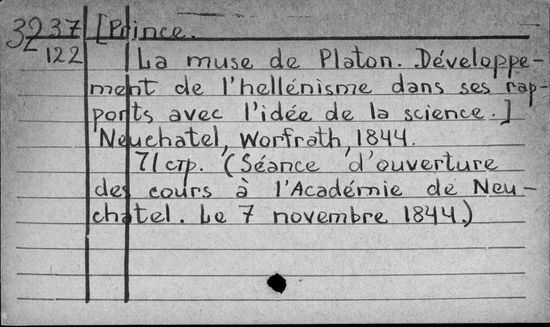 32 37/122 [Prince.
La muse de Platon. Développe-
ment de l'hellénisme dans ses rap-
ports avec l'idée de la science.]
Neuchatel, Worfrath, 1844.
71 стр. (Séance d'ouverture
des cours à l'Académie de Neu-
chatel. Le 7 novembre 1844.)